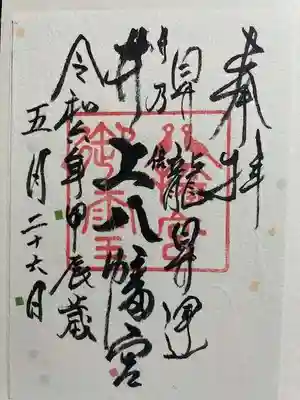 奉拝
昇龍昇運
井
上八幡宮
令和六年甲辰歳
五月二十六日
八幡宮